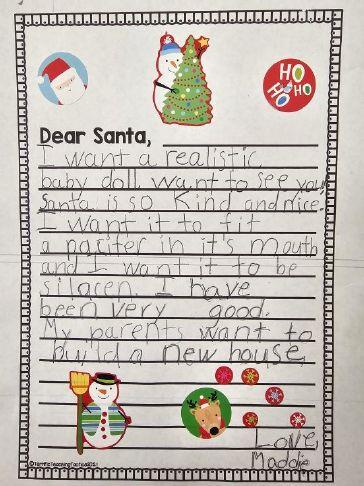 HO HO HO
Dear Santa,
I want a realistic
baby doll. want to see you,
Santa is so kind and nice.
I want it to fit
a pacifer in it's mouth
and I want it to be
silacen. I have
been very good.
My parents want to
build a new house
Love,
Maddie